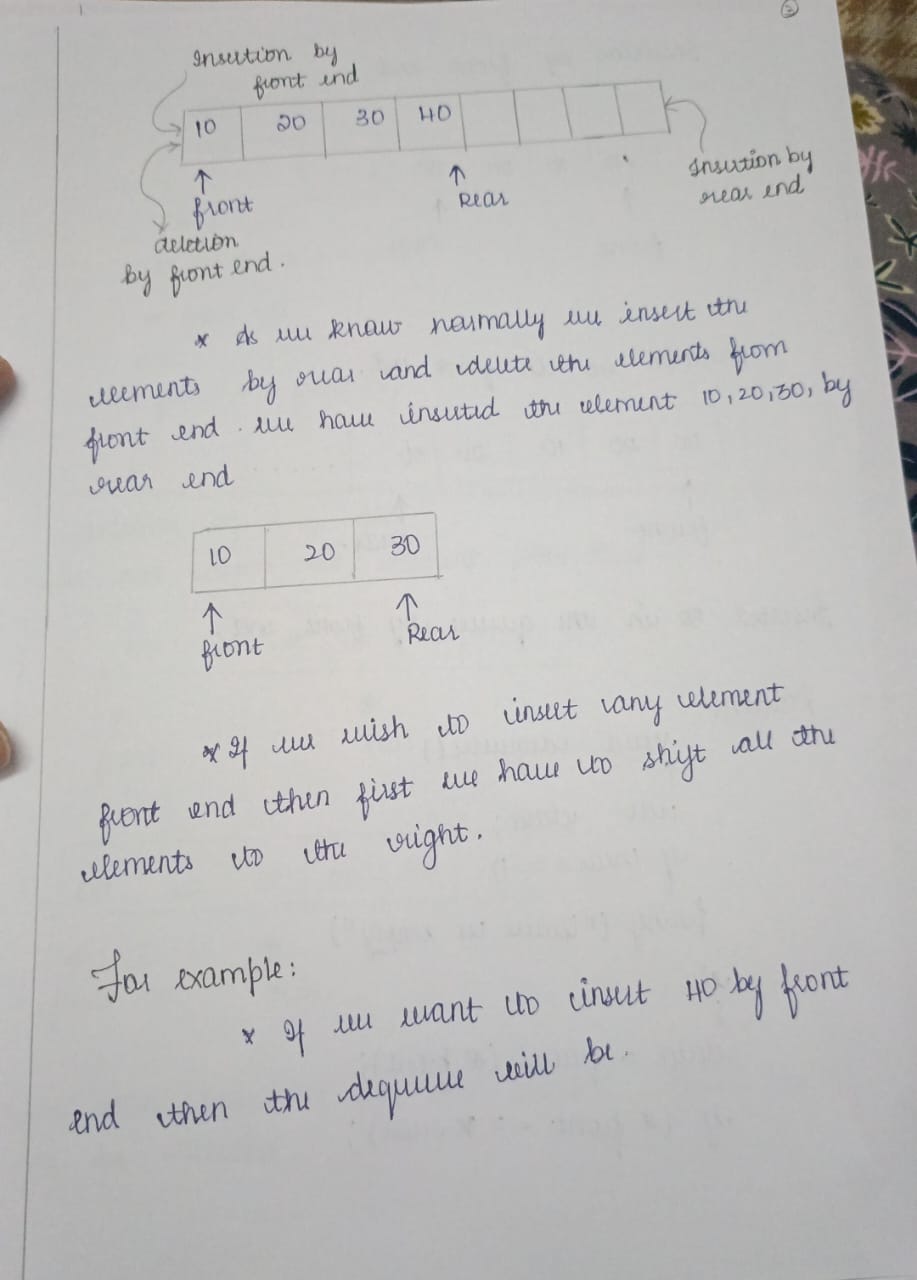 2
Insertion by
front end
10 20 30 40
Insertion by
rear end
front
Rear
deletion
by front end.
* As we know normally we insert the
elements by rear and delete the elements from
front end. we have inserted the element 10, 20, 30, by
rear end
10 20 30
front
Rear
* If we wish to insert any element
front end then first we have to shift all the
elements to the right.
For example:
* If we want to insert 40 by front
end then the dequeue will be.